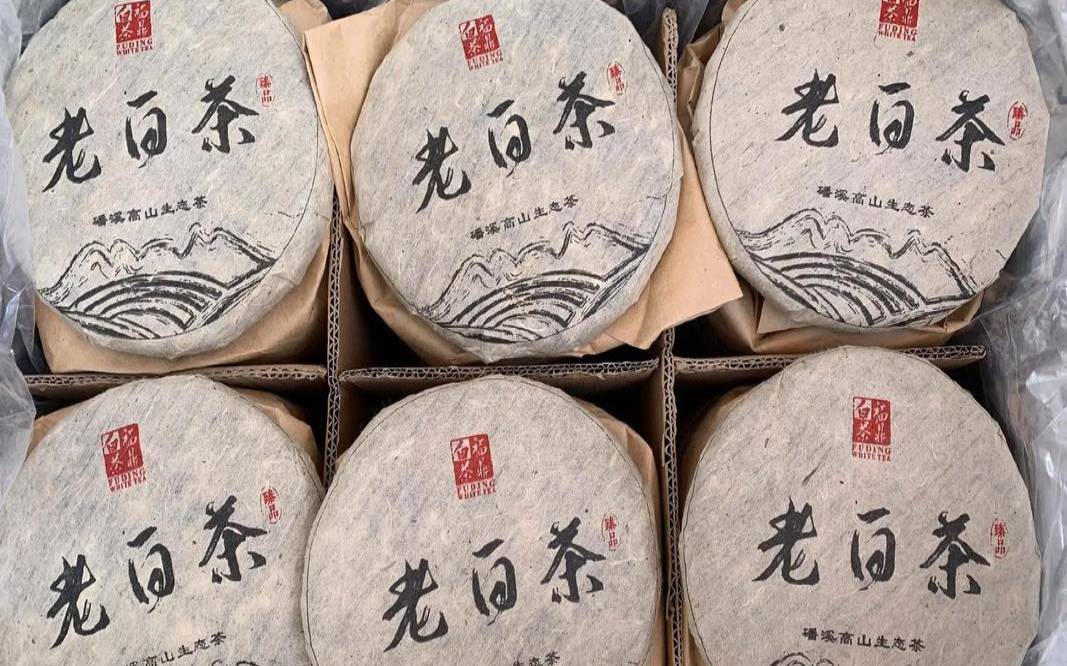 福鼎
白茶
FUDING
WHITE TEA
老白茶
臻品
磻溪高山生态茶
福鼎
白茶
FUDING
WHITE TEA
老白茶
臻品
磻溪高山生态茶
福鼎
白茶
FUDING
WHITE TEA
老白茶
臻品
磻溪高山生态茶
福鼎
白茶
FUDING
WHITE TEA
老白茶
臻品
高山生态茶
福鼎
白茶
FUDING
WHITE TEA
老白茶
臻品
生态茶
福鼎
白茶
FUDING
WHITE TEA
老白茶
臻品
磻溪高山生态茶